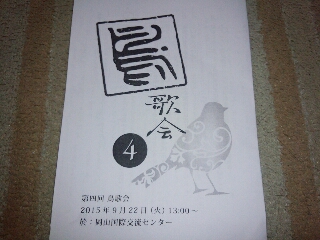 鳥
歌
会
4
第四回 鳥歌会
2015年9月22日(火)13:00～
於：岡山国際交流センター